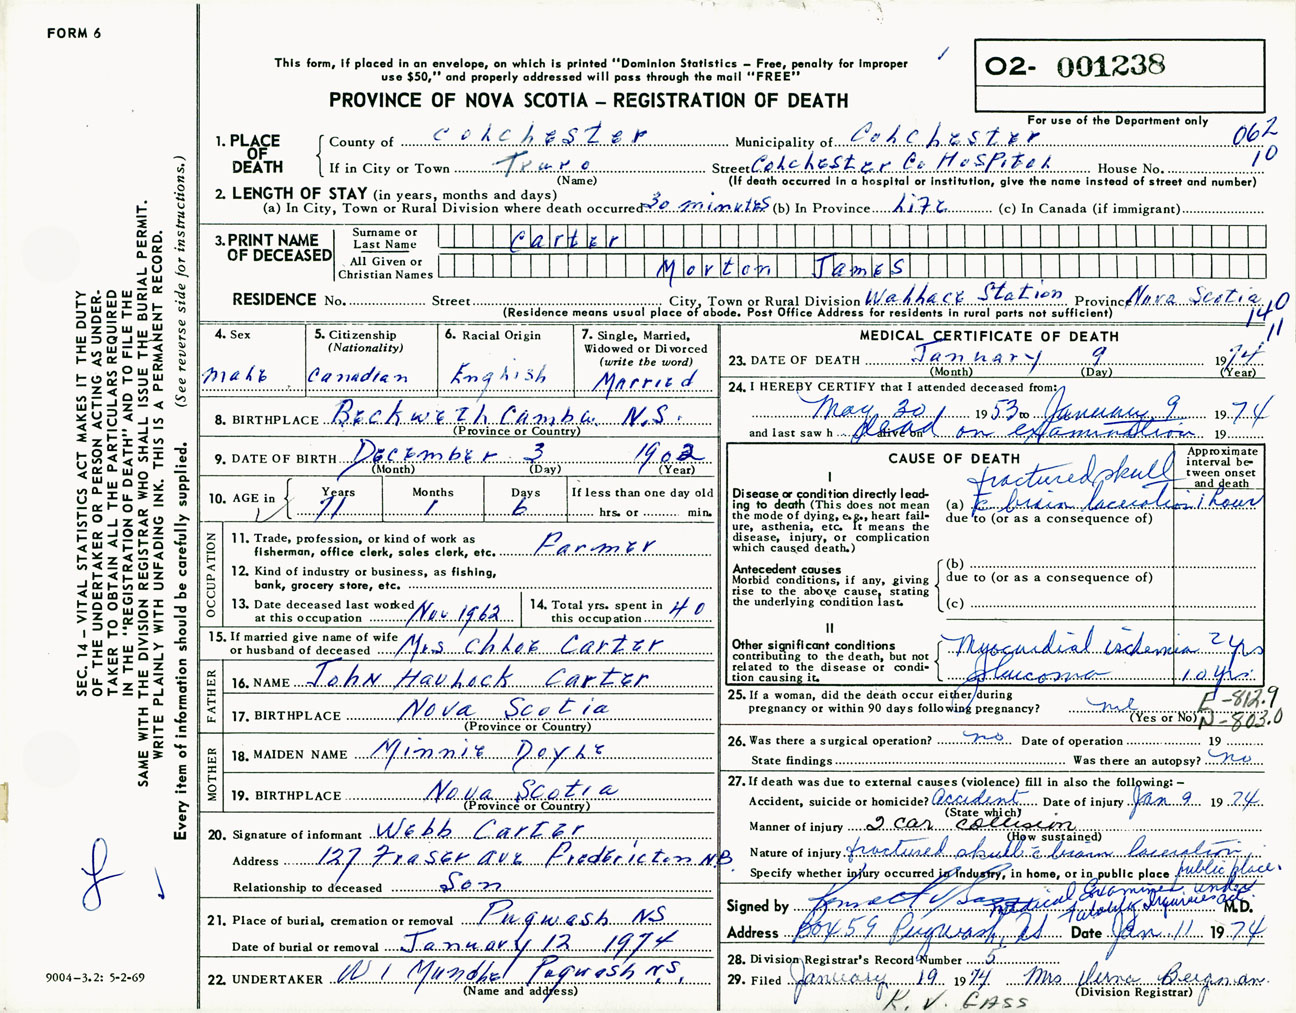 FORM 6
This form, if placed in an envelope, on which is printed "Dominion Statistics – Free, penalty for improper
use $50," and properly addressed will pass through the mail "FREE"
PROVINCE OF NOVA SCOTIA – REGISTRATION OF DEATH
O2- 001238
For use of the Department only
062
10
1. PLACE OF DEATH
County of Colchester Municipality of Colchester
If in City or Town Truro Street Colchester Co Hospital House No.
(Name) (If death occurred in a hospital or institution, give the name instead of street and number)
2. LENGTH OF STAY (in years, months and days)
(a) In City, Town or Rural Division where death occurred 30 minutes (b) In Province Life (c) In Canada (if immigrant)
3. PRINT NAME OF DECEASED
Surname or Last Name Carter
All Given or Christian Names Morton James
RESIDENCE No. Street City, Town or Rural Division Wallace Station Province Nova Scotia
(Residence means usual place of abode. Post Office Address for residents in rural parts not sufficient)
140
11
4. Sex male
5. Citizenship (Nationality) Canadian
6. Racial Origin English
7. Single, Married, Widowed or Divorced (write the word) Married
8. BIRTHPLACE Beckwith Cumb. N.S.
(Province or Country)
9. DATE OF BIRTH December 3 1902
(Month) (Day) (Year)
10. AGE in Years 71 Months 1 Days 6 If less than one day old hrs. or min.
OCCUPATION
11. Trade, profession, or kind of work as
fisherman, office clerk, sales clerk, etc. Farmer
12. Kind of industry or business, as fishing,
bank, grocery store, etc.
13. Date deceased last worked at this occupation Nov 1962
14. Total yrs. spent in this occupation 40
15. If married give name of wife or husband of deceased Mrs Chloe Carter
FATHER
16. NAME John Havlock Carter
17. BIRTHPLACE Nova Scotia
(Province or Country)
MOTHER
18. MAIDEN NAME Minnie Doyle
19. BIRTHPLACE Nova Scotia
(Province or Country)
20. Signature of informant Webb Carter
Address 127 Fraser Ave Fredericton NB
Relationship to deceased Son
21. Place of burial, cremation or removal Pugwash NS
Date of burial or removal January 12 1974
22. UNDERTAKER Pugwash N.S.
(Name and address)
MEDICAL CERTIFICATE OF DEATH
23. DATE OF DEATH January 9 1974
(Month) (Day) (Year)
24. I HEREBY CERTIFY that I attended deceased from:
May 30 1953 to January 9 1974
and last saw h alive on dead on examination 19
CAUSE OF DEATH
Approximate interval between onset and death
I
Disease or condition directly leading to death (This does not
mean the mode of dying, e.g., heart failure, asthenia, etc. It means the
disease, injury, or complication
which caused death.)
(a) fractured skull c brain laceration 1 hour
due to (or as a consequence of)
Antecedent causes
Morbid conditions, if any, giving
rise to the above cause, stating
the underlying condition last.
(b)
due to (or as a consequence of)
(c)
II
Other significant conditions
contributing to the death, but not
related to the disease or condition
causing it.
Myocardial ischemia 2 yrs
Glaucoma 10 yrs.
25. If a woman, did the death occur either during
pregnancy or within 90 days following pregnancy?
(Yes or No)
E-812.9
N-803.0
26. Was there a surgical operation? no Date of operation 19
State findings Was there an autopsy? no
27. If death was due to external causes (violence) fill in also the following: –
Accident, suicide or homicide? Accident Date of injury Jan 9 1974
(State which)
Manner of injury 2 car collision
(How sustained)
Nature of injury fractured skull c brain laceration
Specify whether injury occurred in industry, in home, or in public place public place.
Signed by Medical Examiner under Fatality Inquiries act M.D.
Address Box 59 Pugwash, NS Date Jan 11 1974
28. Division Registrar's Record Number 5
29. Filed January 19 1974 Mrs Verna Bergman
(Division Registrar)
K. V. GASS
SEC. 14 – VITAL STATISTICS ACT MAKES IT THE DUTY
OF THE UNDERTAKER OR PERSON ACTING AS UNDER-
TAKER TO OBTAIN ALL THE PARTICULARS REQUIRED
IN THE "REGISTRATION OF DEATH" AND TO FILE THE
SAME WITH THE DIVISION REGISTRAR WHO SHALL ISSUE THE BURIAL PERMIT.
WRITE PLAINLY WITH UNFADING INK. THIS IS A PERMANENT RECORD.
Every item of information should be carefully supplied. (See reverse side for instructions.)
9004-3.2: 5-2-69